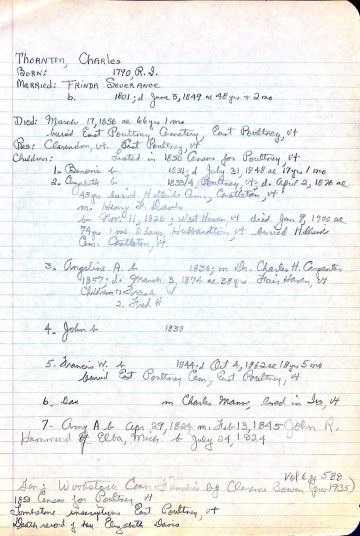 Thornton, Charles
Born: 1790, R. I.
Married: Frinda Severance
b. 1801; d June 5, 1849 ae 48 yrs + 2 mo
Died: March 17, 1856 ae 66 yrs 1 mo
buried East Poultney Cemetery, East Poultney, Vt
Res: Clarendon, Vt. East Poultney, Vt
Children: Listed in 1850 Census for Poultney, Vt
1. Benonie b 1831; d July 31, 1848 ae 17 yrs 1 mo
2. Elizabeth b 1833/4 Poultney, Vt; d. April 2, 1876 ae
43 yrs buried Hillside Cem., Castleton, Vt
m. Henry F. Davis
b Nov. 11, 1826; West Haven Vt died Jan 9, 1900 ae
74 yrs 1 mo. 8 days, Hubbardton, Vt buried Hillside
Cem. Castleton, Vt
3. Angeline A. b 1836; m Dr. Charles H. Carpenter
1857. d. March 3, 1874 ae 38 yrs Fair Haven Vt
Children: 1. Frank W
2. Fred H
4. John b 1838
5. Francis W. b 1844. d Oct 2, 1862 ae 18 yrs 5 mo
buried East Poultney Cem, East Poultney, Vt
6. Dau m Charles Mann, lived in Ira, Vt
7- Amy A b Apr 29, 1824 m. Feb 13, 1845 John R.
Hammond of Elba, Mich. b July 24, 1824
Vol 6 p 588
Gen of Woodstock Conn Families by Clarence Bowen (1935)
1850 Census for Poultney Vt
Tombstone inscriptions East Poultney, Vt
Death record of dau Elizabeth Davis